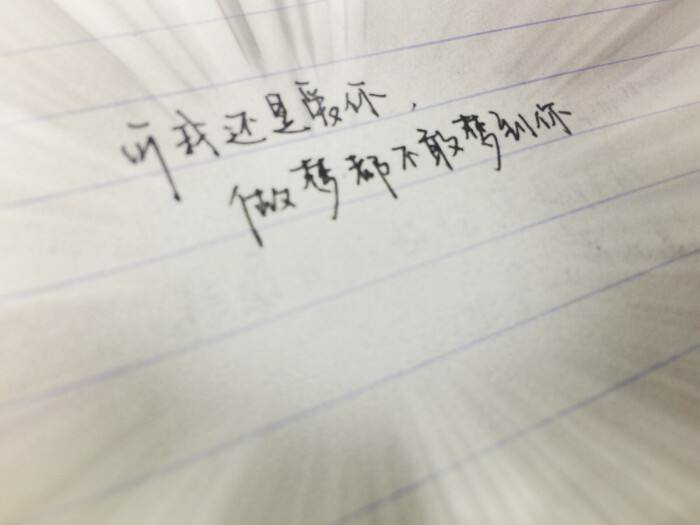 听我还是爱你,
做梦都不敢梦到你